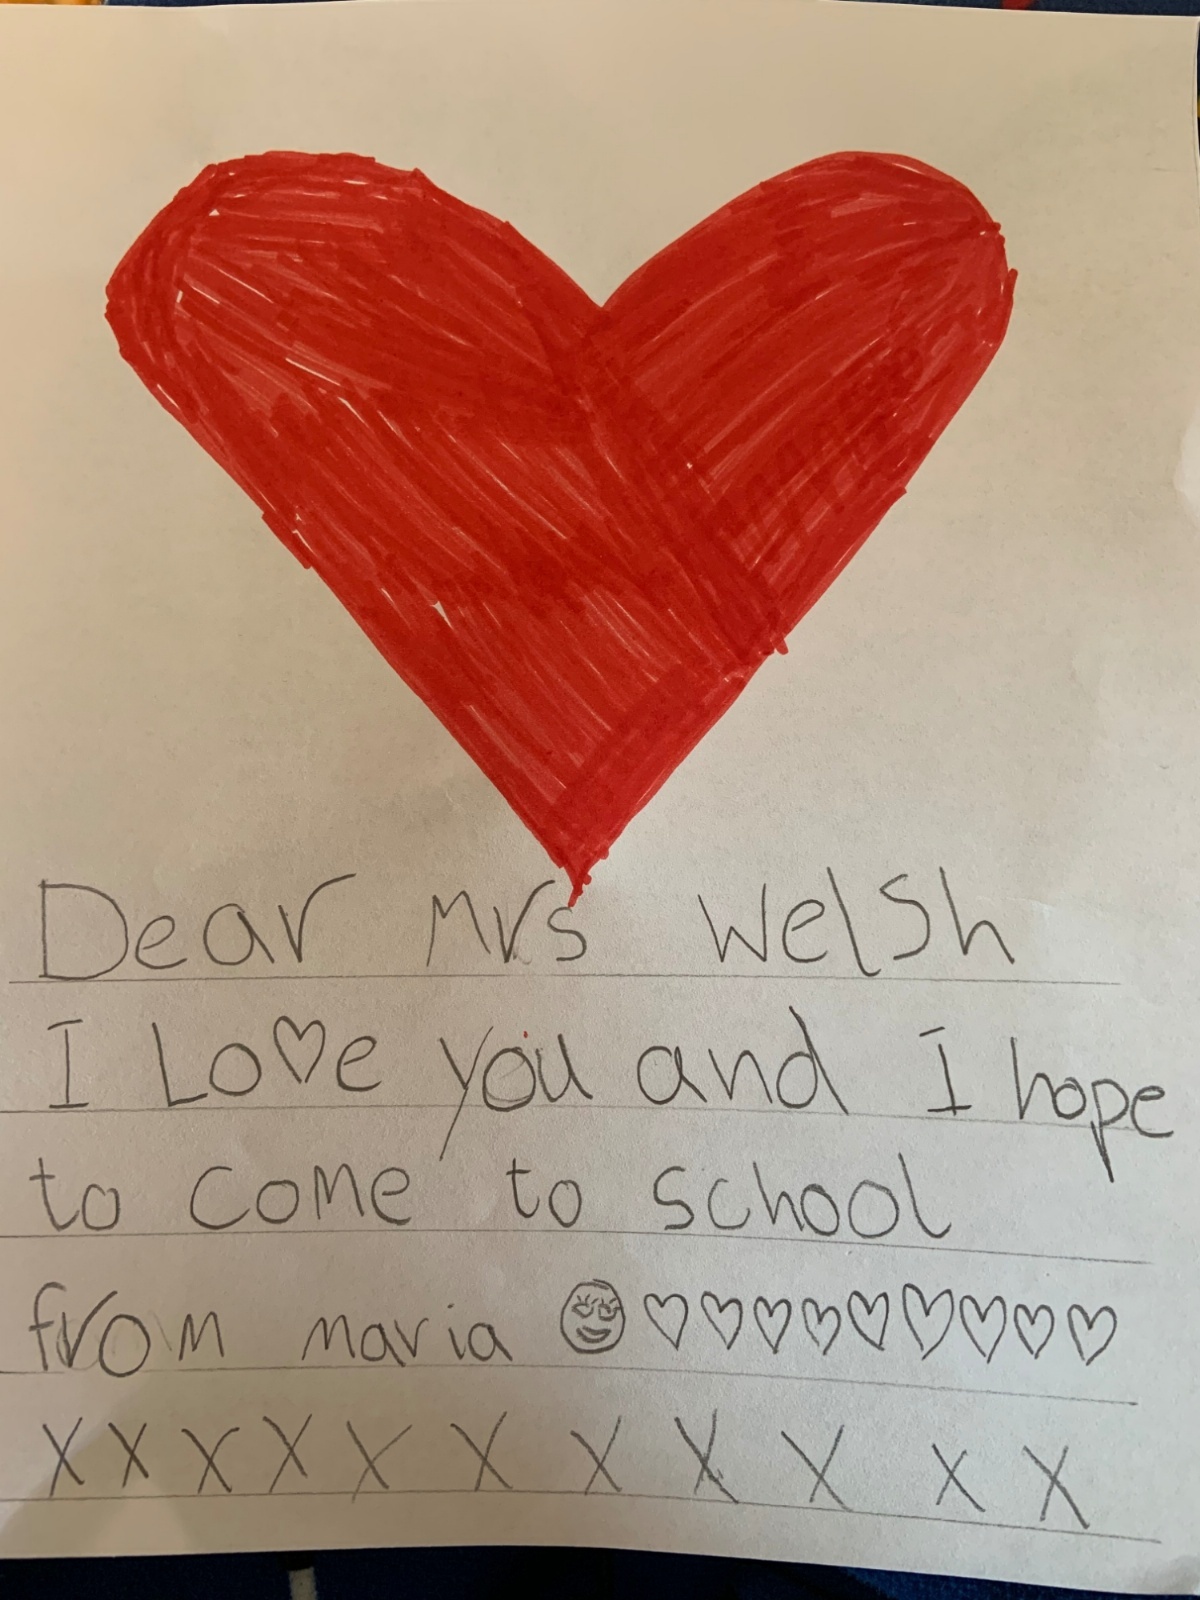 Dear Mrs Welsh
I Lo♡e you and I hope
to come to school
from maria ☺♡♡♡♡♡♡♡♡♡
X X X X X X X X X X X